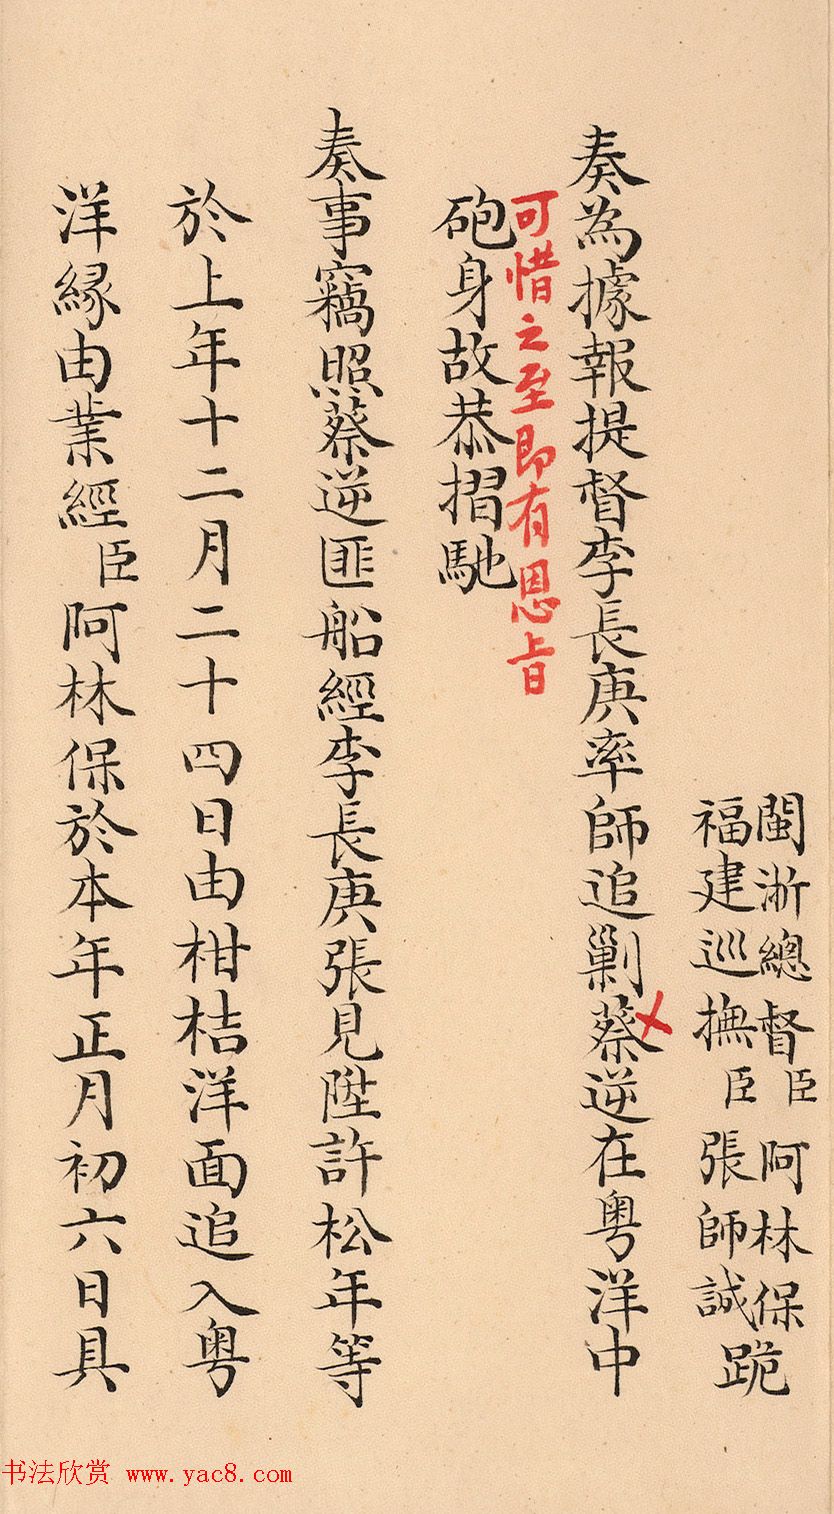 閩浙總督臣阿林保
福建巡撫臣張師誠跪
奏為據報提督李長庚率師追剿蔡逆在粵洋中
可惜之至即有恩旨
砲身故恭摺馳
奏事竊照蔡逆匪船經李長庚張見陞許松年等
於上年十二月二十四日由柑桔洋面追入粵
洋緣由業經臣阿林保於本年正月初六日具
书法欣赏 www.yac8.com